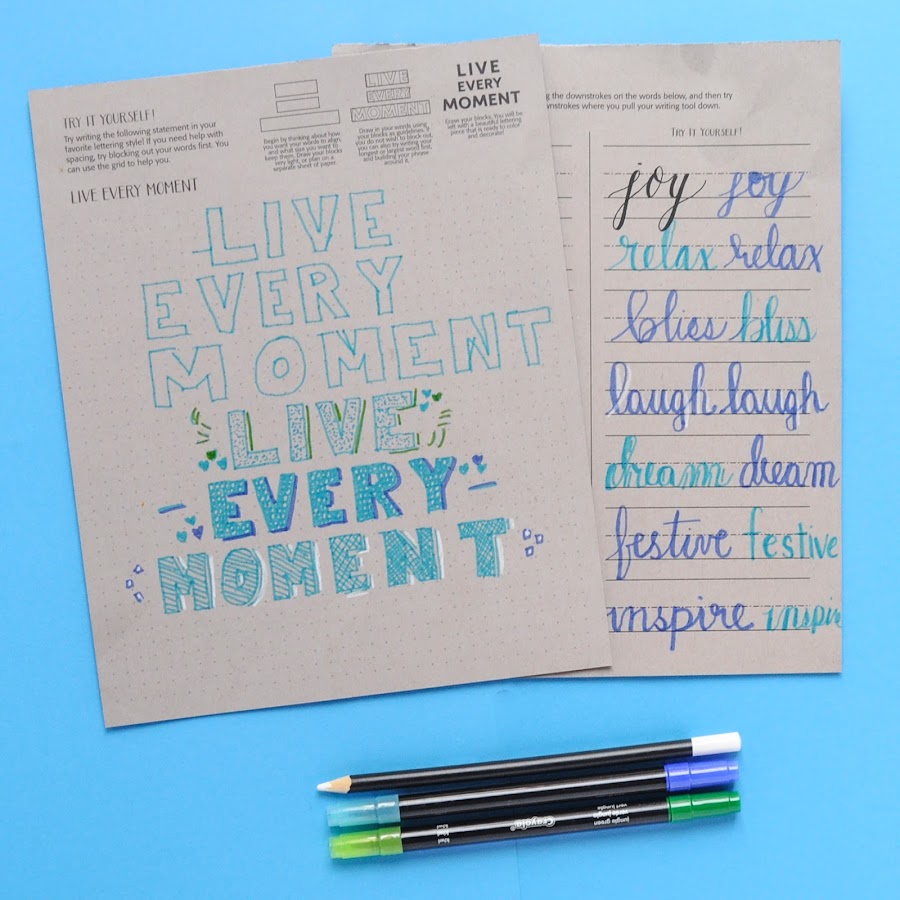 TRY IT YOURSELF!
Try writing the following statement in your
favorite lettering style! If you need help with
spacing, try blocking out your words first. You
can use the grid to help you.
LIVE EVERY MOMENT
Begin by thinking about how
you want your words to align,
and what size you want to
keep them. Draw your blocks
very light, or plan on a
separate sheet of paper.
LIVE
EVERY
MOMENT
Draw in your words using
your blocks as guidelines. If
you do not wish to block out,
you can also try writing your
longest or largest word first,
and building your phrase
around it.
LIVE
EVERY
MOMENT
Draw your blocks. You will be
left with a beautiful lettering
piece that is ready to color
and decorate!
LIVE
EVERY
MOMENT
LIVE
EVERY
MOMENT
the downstrokes on the words below, and then try
downstrokes where you pull your writing tool down.
TRY IT YOURSELF!
joy joy
relax relax
blies bliss
laugh laugh
dream dream
festive festive
inspire inspir
Crayola
jungle green